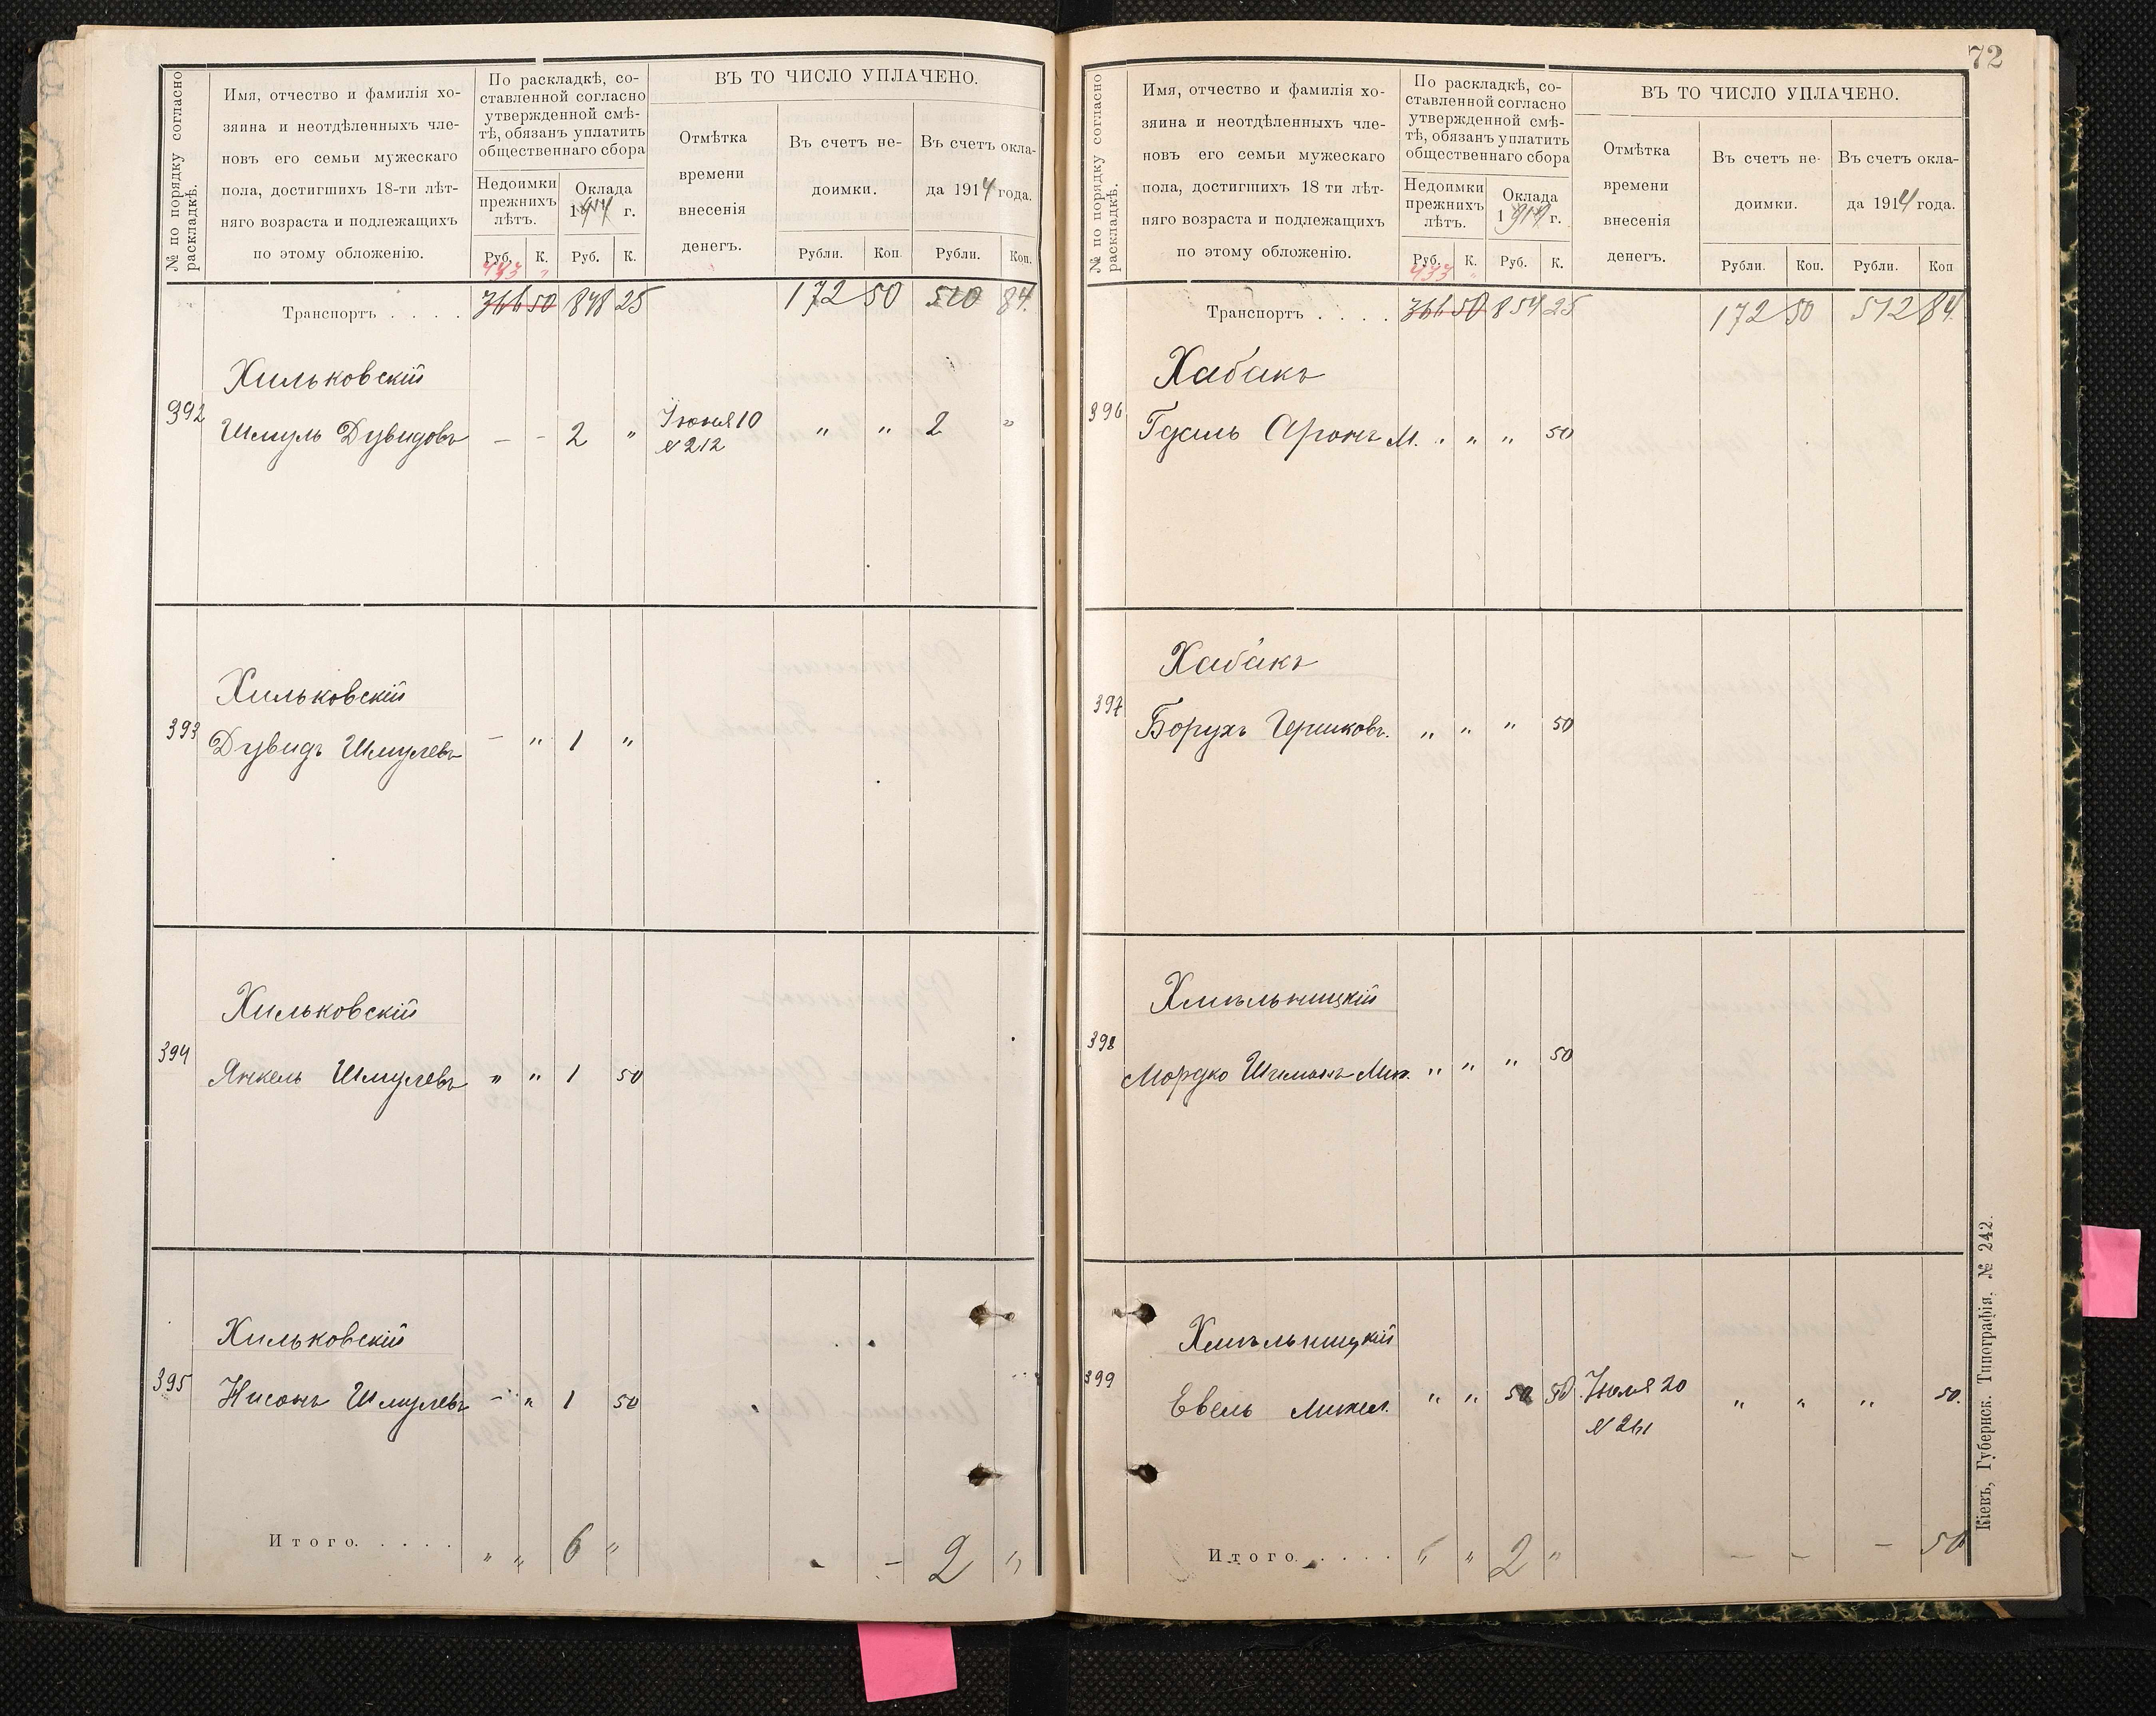 № по порядку согласно
раскладкѣ.
Имя, отчество и фамилія хо-
зяина и неотдѣленныхъ чле-
новъ его семьи мужескаго
пола, достигшихъ 18-ти лѣт-
няго возраста и подлежащихъ
по этому обложенію.
По раскладкѣ, со-
ставленной согласно
утвержденной смѣ-
тѣ, обязанъ уплатить
общественнаго сбора
Недоимки
прежнихъ
лѣтъ.
Оклада
1914 г.
Руб. К. Руб. К.
ВЪ ТО ЧИСЛО УПЛАЧЕНО.
Отмѣтка
времени
внесенія
денегъ.
Въ счетъ не-
доимки.
Въ счетъ окла-
да 1914 года.
Рубли. Коп. Рубли. Коп.
433 "
Транспортъ . . . . 366 50 848 25 172 50 510 84.
Хильковскій
392 Шмуль Дувидовъ — - 2 " Іюня 10 " " 2 "
№ 212
Хильковскій
393 Дувидъ Шмулевъ — " 1 "
Хильковскій
394 Янкель Шмулевъ " " 1 50
Хильковскій
395 Нисонъ Шмулевъ — " 1 50
Итого. . . . . " " 6 " - — 2 "
72
№ по порядку согласно
раскладкѣ.
Имя, отчество и фамилія хо-
зяина и неотдѣленныхъ чле-
новъ его семьи мужескаго
пола, достигшихъ 18 ти лѣт-
няго возраста и подлежащихъ
по этому обложенію.
По раскладкѣ, со-
ставленной согласно
утвержденной смѣ-
тѣ, обязанъ уплатить
общественнаго сбора
Недоимки
прежнихъ
лѣтъ.
Оклада
1914 г.
Руб. К. Руб. К.
ВЪ ТО ЧИСЛО УПЛАЧЕНО.
Отмѣтка
времени
внесенія
денегъ.
Въ счетъ не-
доимки.
Въ счетъ окла-
да 1914 года.
Рубли. Коп. Рубли. Коп
433 "
Транспортъ . . . . 366 50 854 25 172 50 512 84.
Хабакъ
396 Гдаль Аронъ М. " " " 50
Хабакъ
397 Борухъ Гершковъ. " " " 50
Хмѣльницкій
398 Мордко Шимонъ " " " 50
Хмѣльницкій
399 Евель " " 50 Іюля 20 " " " 50.
№ 261
Итого. . . . . " " 2 " — - — 50
Кіевъ, Губернск. Типографія, № 242.